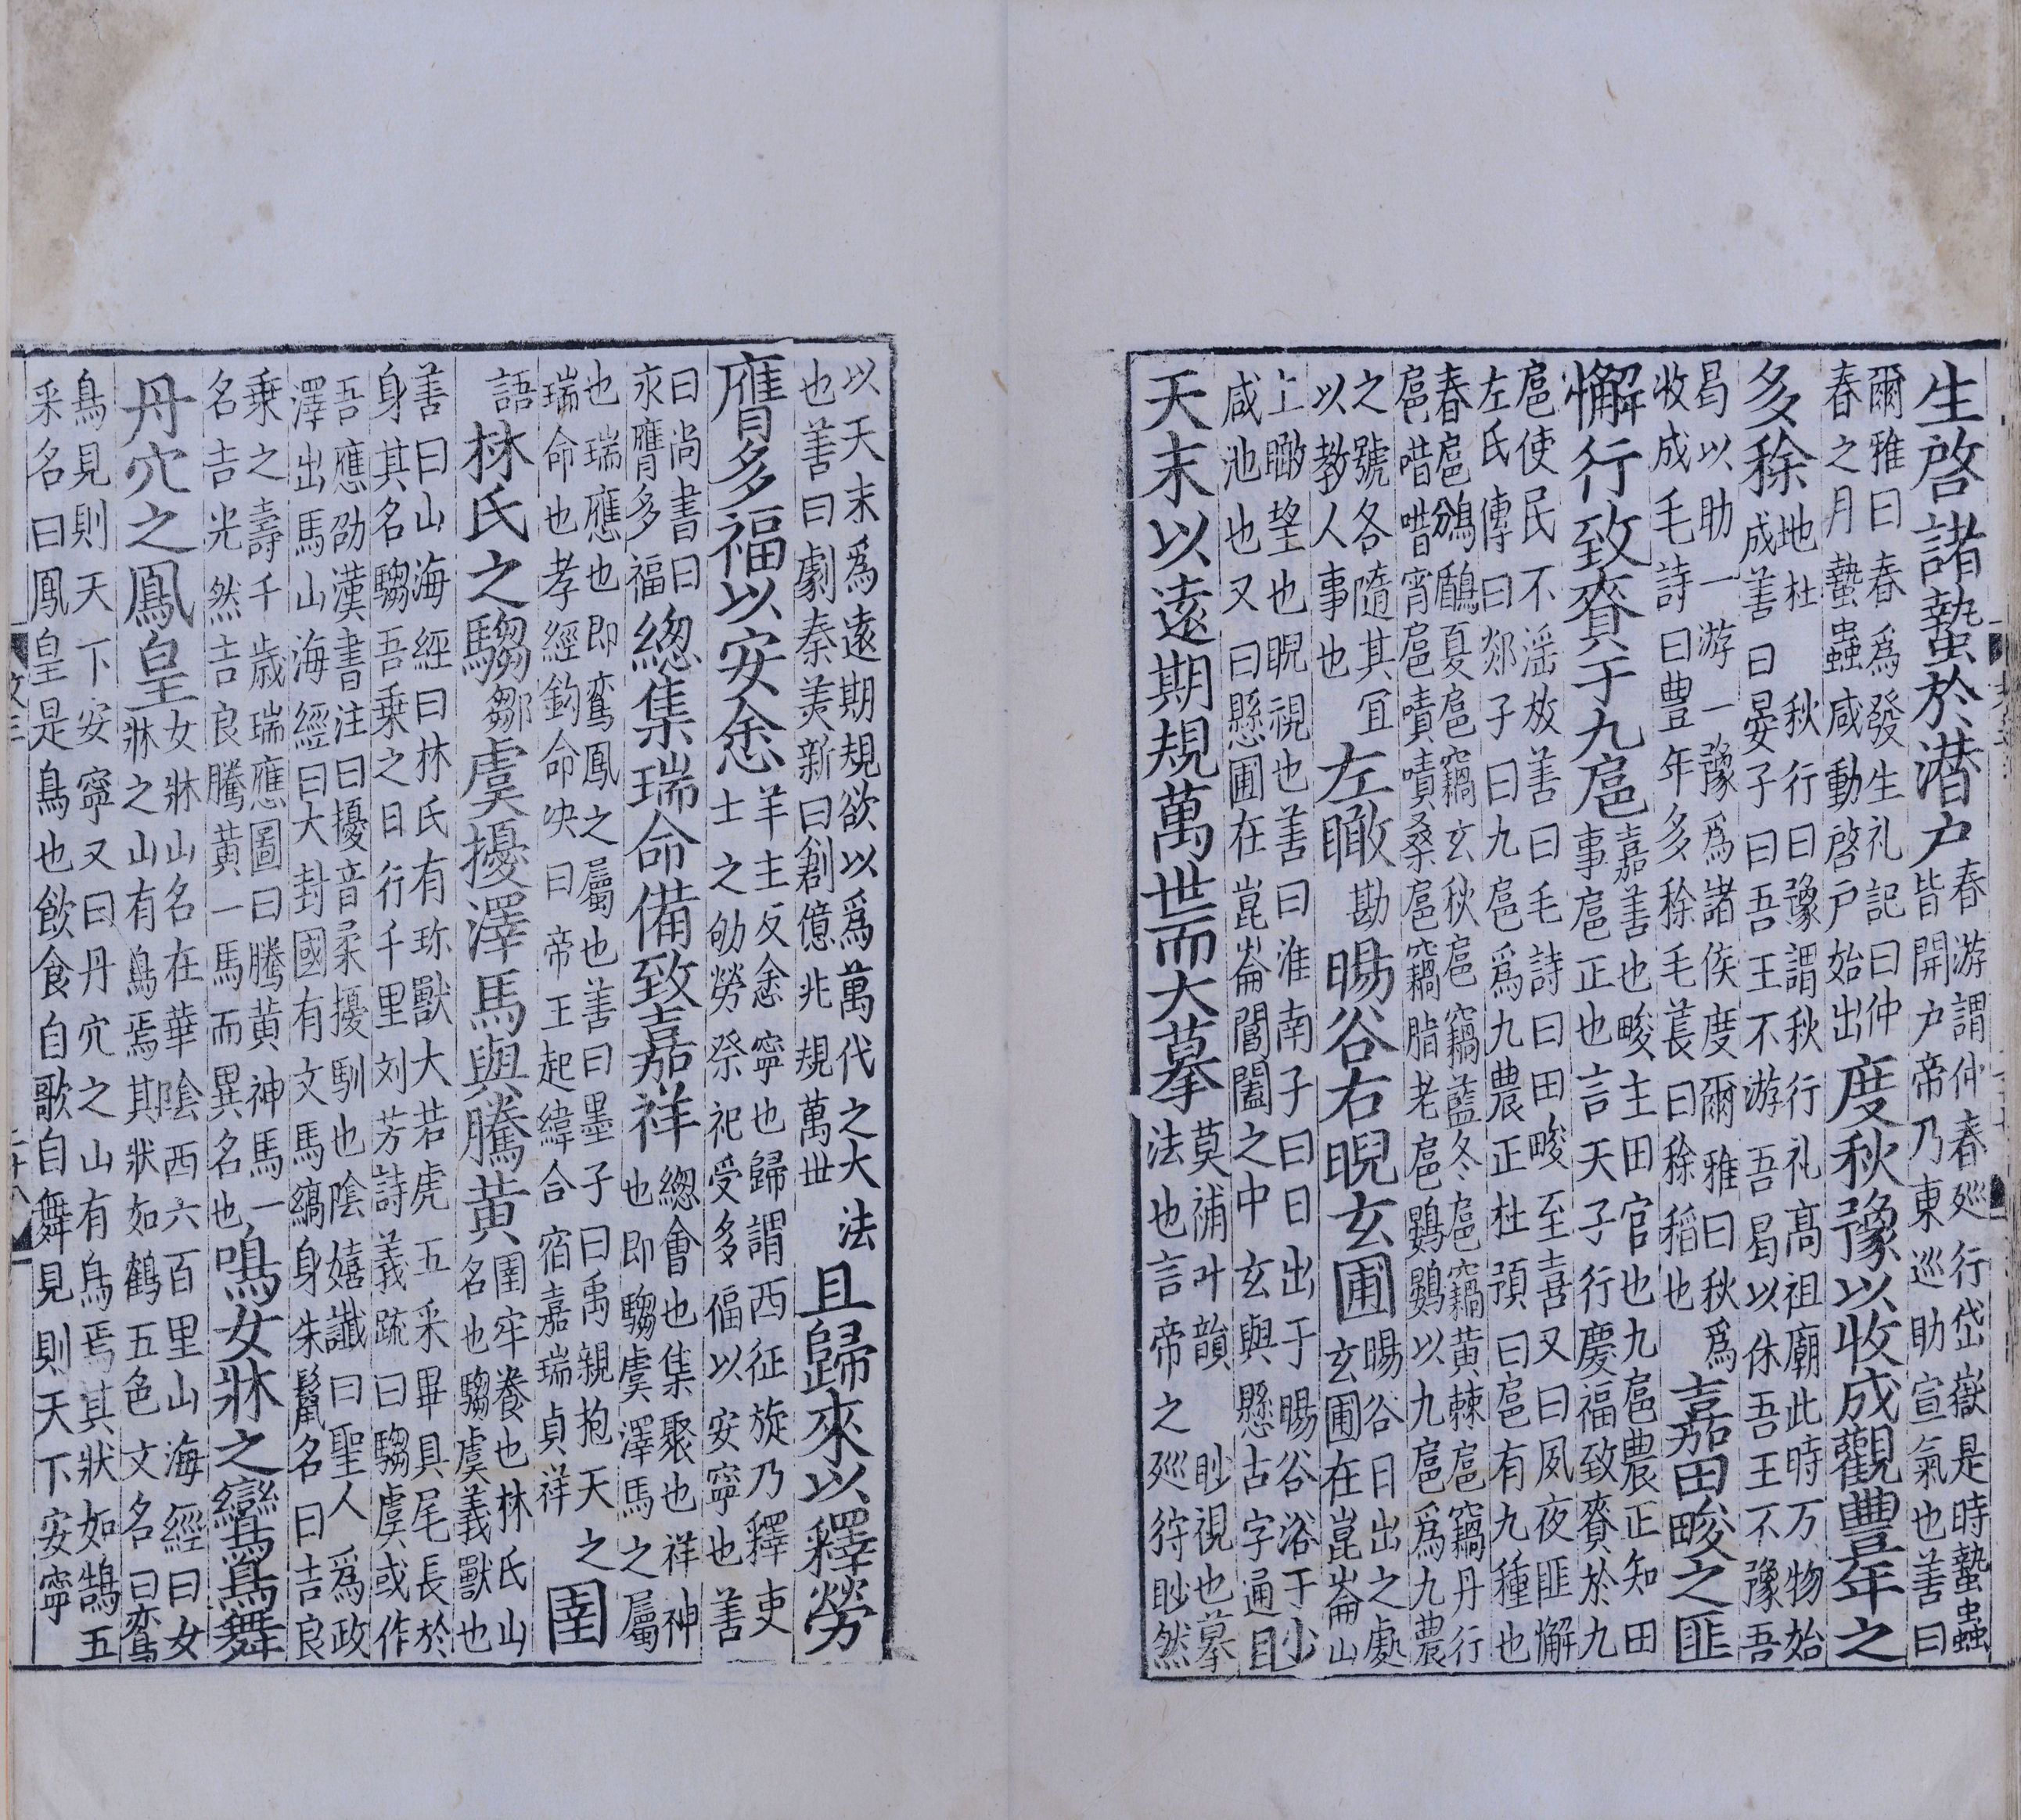 生啓諸蟄於潜户
春游謂仲春廵行岱嶽是時蟄蟲
皆開户帝乃東巡助宣氣也善曰
爾雅曰春爲發生礼記曰仲
春之月蟄蟲咸動啓户始出
度秋豫以收成觀豐年之
多稌
地杜 秋行曰豫謂秋行礼高祖廟此時万物始
成善曰晏子曰吾王不游吾曷以休吾王不豫吾
曷以助一游一豫爲諸侯度爾雅曰秋爲
收成毛詩曰豊年多稌毛萇曰稌稻也
嘉田畯之匪
懈行致賚于九扈
嘉善也畯主田官也九扈農正知田
事扈正也言天子行慶福致賚於九
扈使民不滛放善曰毛詩曰田畯至喜又曰夙夜匪懈
左氏傳曰郯子曰九扈爲九農正杜預曰扈有九種也
春扈鳻鶥夏扈竊玄秋扈竊藍冬扈竊黄棘扈竊丹行
扈唶唶宵扈嘖嘖桑扈竊脂老扈鷃鷃以九扈爲九農
之號各隨其冝
以教人事也
左瞰
勘
暘谷右睨玄圃
暘谷日出之處
玄圃在崑崙山
上瞰望也睨視也善曰淮南子曰日出于暘谷浴于
咸池也又曰懸圃在崑崙閶闔之中玄與懸古字通
眇
天末以遠期規萬世而大摹
莫蒲叶韻 眇視也摹
法也言帝之廵狩眇然
以天末爲遠期規欲以爲萬代之大法
也善曰劇秦美新曰創億兆規萬世
且歸來以釋勞
膺多福以安悆
羊主反悆寧也歸謂西征旋乃釋吏
士之劬勞祭祀受多福以安寧也善
曰尚書曰
永膺多福
緫集瑞命備致嘉祥
緫會也集聚也祥神
也即騶虞澤馬之屬
也瑞應也即鸞鳳之屬也善曰墨子曰禹親抱天之
瑞命也孝經鈎命决曰帝王起緯合宿嘉瑞貞祥
圉
語
林氏之騶
鄒
虞擾澤馬與騰黄
圉牢養也林氏山
名也騶虞義獸也
善曰山海經曰林氏有珎獸大若虎五采畢具尾長於
身其名騶吾乗之日行千里刘芳詩義疏曰騶虞或作
吾應劭漢書注曰擾音柔擾馴也陰嬉讖曰聖人爲政
澤出馬山海經曰大封國有文馬縞身朱鬣名曰吉良
乗之壽千歲瑞應圖曰騰黄神馬一
名吉光然吉良騰黄一馬而異名也
鳴女牀之鸞鳥舞
丹穴之鳳皇
女牀山名在華陰西六百里山海經曰女
牀之山有鳥焉其狀如鶴五色文名曰鸞
鳥見則天下安寧又曰丹穴之山有鳥焉其狀如鵠五
采名曰鳳皇是鳥也飲食自歌自舞見則天下安寧